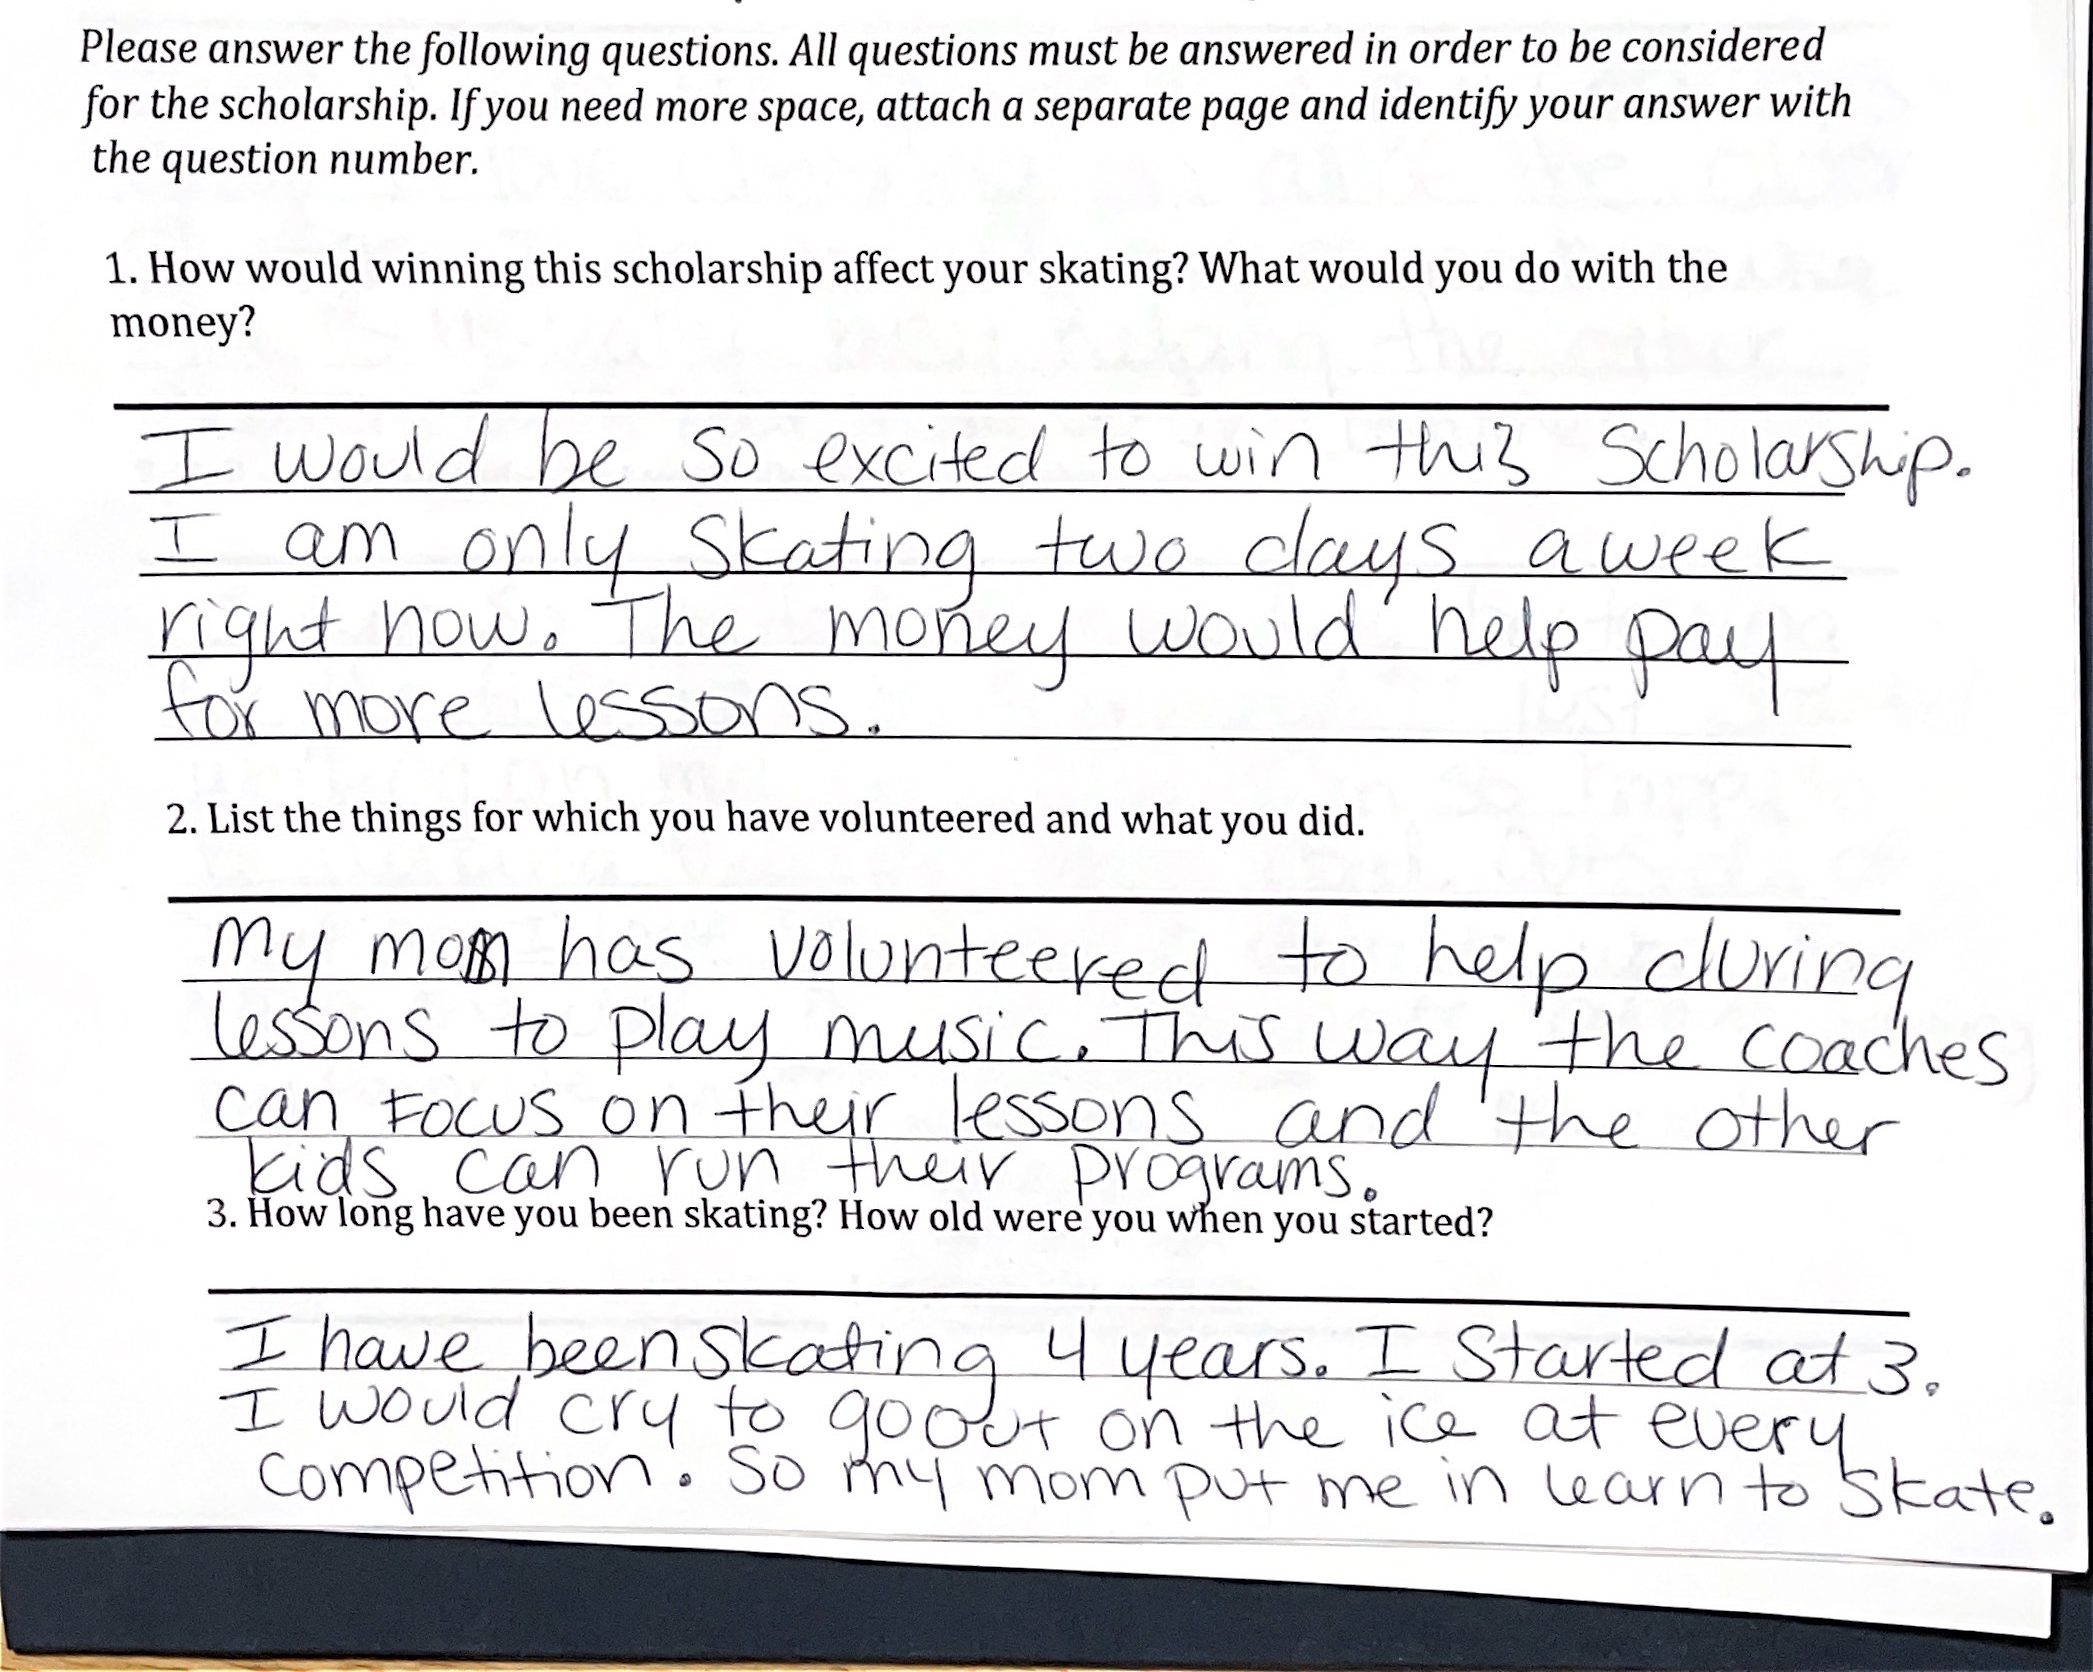 Please answer the following questions. All questions must be answered in order to be considered
for the scholarship. If you need more space, attach a separate page and identify your answer with
the question number.
1. How would winning this scholarship affect your skating? What would you do with the
money?
I would be so excited to win this Scholarship.
I am only skating two days a week
right now. The money would help pay
for more lessons.
2. List the things for which you have volunteered and what you did.
My mom has volunteered to help during
lessons to play music. This way the coaches
can focus on their lessons and the other
kids can run their programs.
3. How long have you been skating? How old were you when you started?
I have been skating 4 years. I Started at 3.
I would cry to go out on the ice at every
competition. So my mom put me in learn to skate.